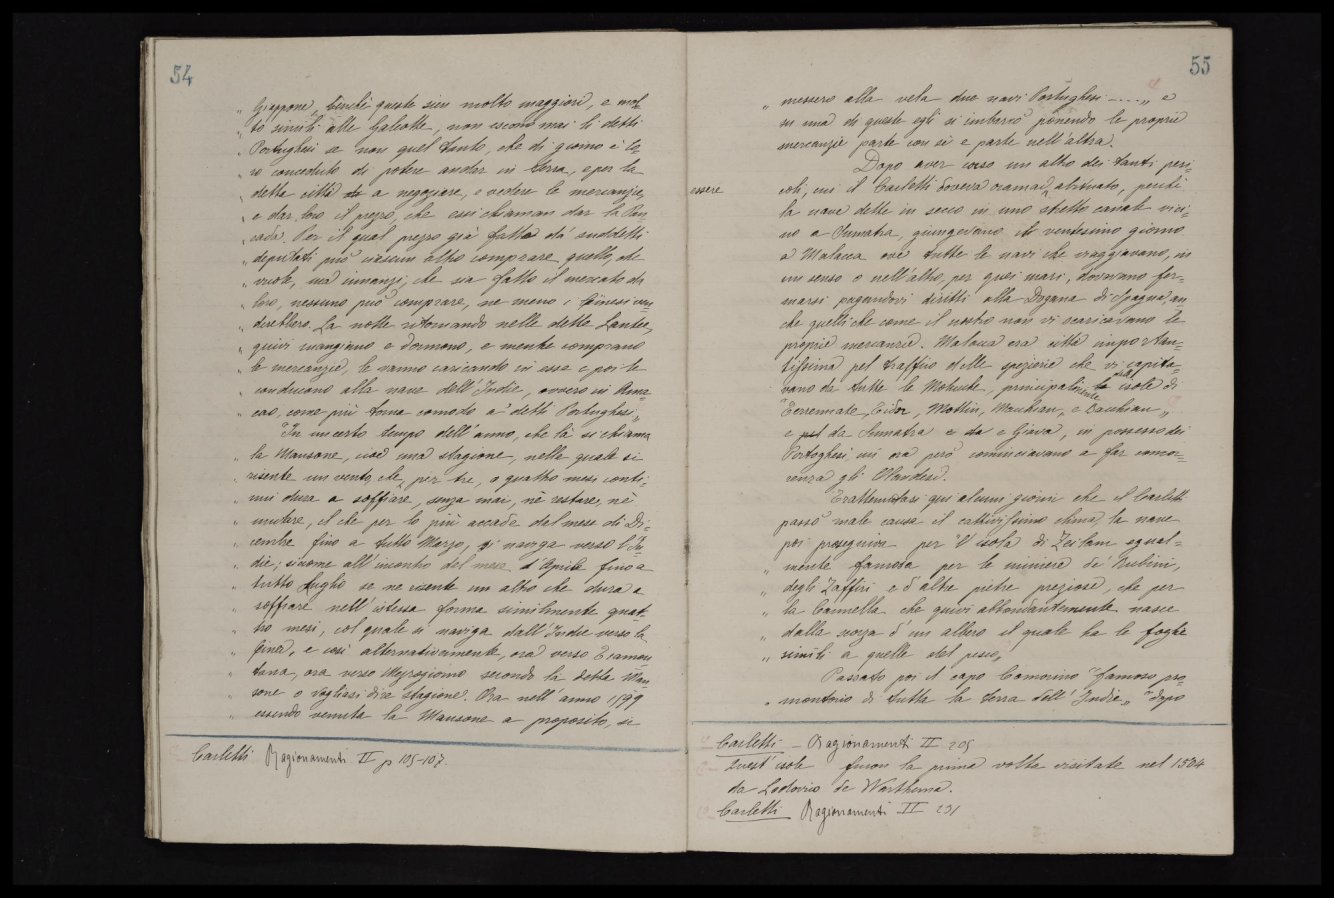 54
„ Giappone, benchè queste sien molto maggiori, e mol
„ to simili alle Galeotte, non escono mai li detti
„ Portughesi se non quel tanto, che di giorno è lo=
„ ro conceduto di potere andar in terra, e per la
„ detta città a negoziare, e vedere le mercanzie,
„ e dar loro il prezzo, che essi chiaman dar la Pan
„ cada. Per il qual prezzo già fatto da' suddetti
„ deputati può ciascun altro comprare quello, che
„ vuole, ma innanzi, che sia fatto il mercato da
„ loro, nessuno può comprare, ne meno i Cinesi ven
„ derebbero. La notte ritornando nelle dette Lantee,
„ quivi mangiano e dormono, e mentre comprano
„ le mercanzie, le vanno caricando in esse e poi le
„ conducono alla nave dell'Indie, ovvero in Ama=
„ cao, come più torna comodo a' detti Portughesi„
"In un certo tempo dell'anno, che là si chiama
„ la Mansone, cioè una stagione, nella quale si
„ risente un vento, che per tre, o quattro mesi conti=
„ nui dura a soffiare, senza mai, nè restare, nè
„ mutare, il che per lo più accade del mese di Di=
„ cembre fino a tutto Marzo, si naviga verso l'In=
„ die; siccome all'incontro del mese d'Aprile fino a
„ tutto Luglio se ne risente un altro che dura a
„ soffiare nell'istessa forma similmente quat=
„ tro mesi, col quale si naviga dall'Indie verso la
„ Cina, e così alternativamente, ora verso Tramon
„ tana, ora verso Mezzogiorno secondo la detta Man
„ sone o vogliasi dire stagione. Ora nell'anno 1599
„ essendo venuta la Mansone a proposito, si
Carletti Ragionamenti II p 105-107.
55
„ messero alla vela due navi Portughesi -....„ e
su una di queste egli si imbarcò ponendo le proprie
mercanzie parte con sè e parte nell'altra.
Dopo aver corso un altro dei tanti peri=
coli, cui il Carletti doveva oramai essere abituato, perchè
la nave dette in secco in uno stretto canale vici=
no a Sumatra, giungevano il ventesimo giorno
a Malacca ove tutte le navi che viaggiavano, in
un senso o nell'altro, per quei mari, dovevano fer=
marsi pagandovi diritti alla Dogana di Spagna, an
che quelli che come il nostro non vi scaricavano le
proprie mercanzie. Malacca era città importan=
tissima pel traffico delle spezierie che vi capita=
vano da tutte le Molucche, principalmente dalle isole di
"Terrennate, Tidor, Mottir, Macchian, e Bacchian„
e da Sumatra e da Giava, in possesso dei
Portoghesi cui ora però cominciavano a far concor=
renza gli Olandesi.
Trattenutasi qui alcuni giorni che il Carletti
passò male causa il cattivissimo clima, la nave
poi proseguiva per "l'isola di Zeilan egual=
„ mente famosa per le miniere de' Rubini,
„ degli Zaffiri e d'altre pietre preziose, che per
„ la Cannella che quivi abbondantemente nasce
„ dalla scorza d'un albero il quale ha le foglie
„ simili a quelle del pesco„
Passato poi il capo Comorino "famoso pro=
„ montorio di tutta la terra dell'Indie„ "dopo
Carletti - Ragionamenti II 205
Quest'isole furon la prima volta visitate nel 1504
da Lodovico de Warthema.
Carletti Ragionamenti II 231